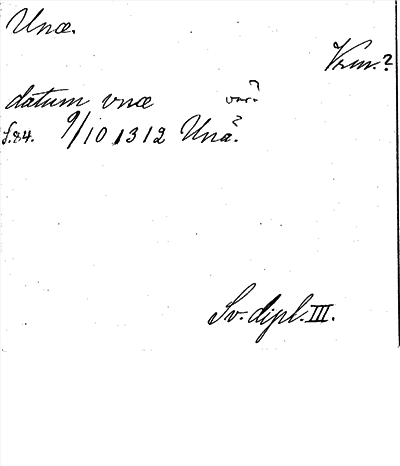 Unæ.
Vrm.?
datum vnæ var?
S. 84. 9/10 1312 Una?.
Sv. dipl. III.